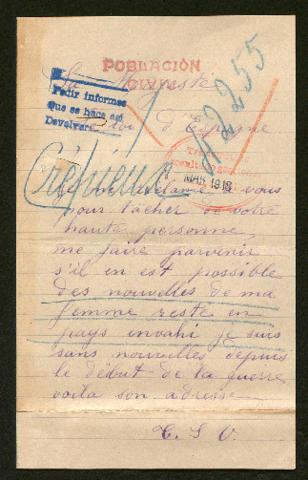 POBLACIÓN
CIVIL
Sa Majesté
Pedir informes
Que se hace así
Devolvera
le roi d'Espagne
12255
MAR 1916
Je me réclame à vous
pour tâcher de votre
haute personne,
me faire parvenir
s'il en est possible
des nouvelles de ma
femme reste en
pays envahi je suis
sans nouvelles depuis
le début de la guerre
voila son adresse
T. S. V.